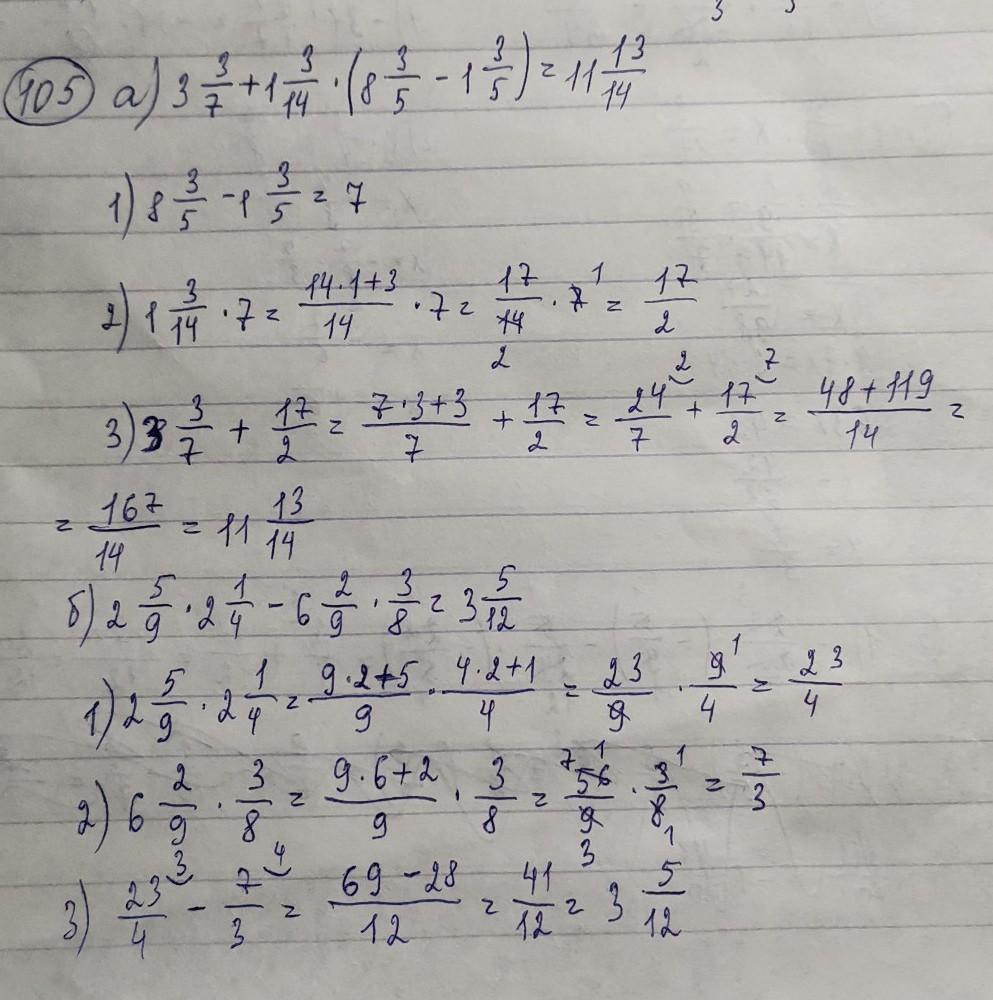 105 а) 3 3/7 + 1 3/14 · (8 3/5 - 1 3/5) = 11 13/14
1) 8 3/5 - 1 3/5 = 7
2) 1 3/14 · 7 = 14·1+3/14 · 7 = 17/14 · 7 = 17/2
3) 3 3/7 + 17/2 = 7·3+3/7 + 17/2 = 24/7 + 17/2 = 48+119/14 =
= 167/14 = 11 13/14
б) 2 5/9 · 2 1/4 - 6 2/9 · 3/8 = 3 5/12
1) 2 5/9 · 2 1/4 = 9·2+5/9 · 4·2+1/4 = 23/9 · 9/4 = 23/4
2) 6 2/9 · 3/8 = 9·6+2/9 · 3/8 = 56/9 · 3/8 = 7/3
3) 23/4 - 7/3 = 69-28/12 = 41/12 = 3 5/12